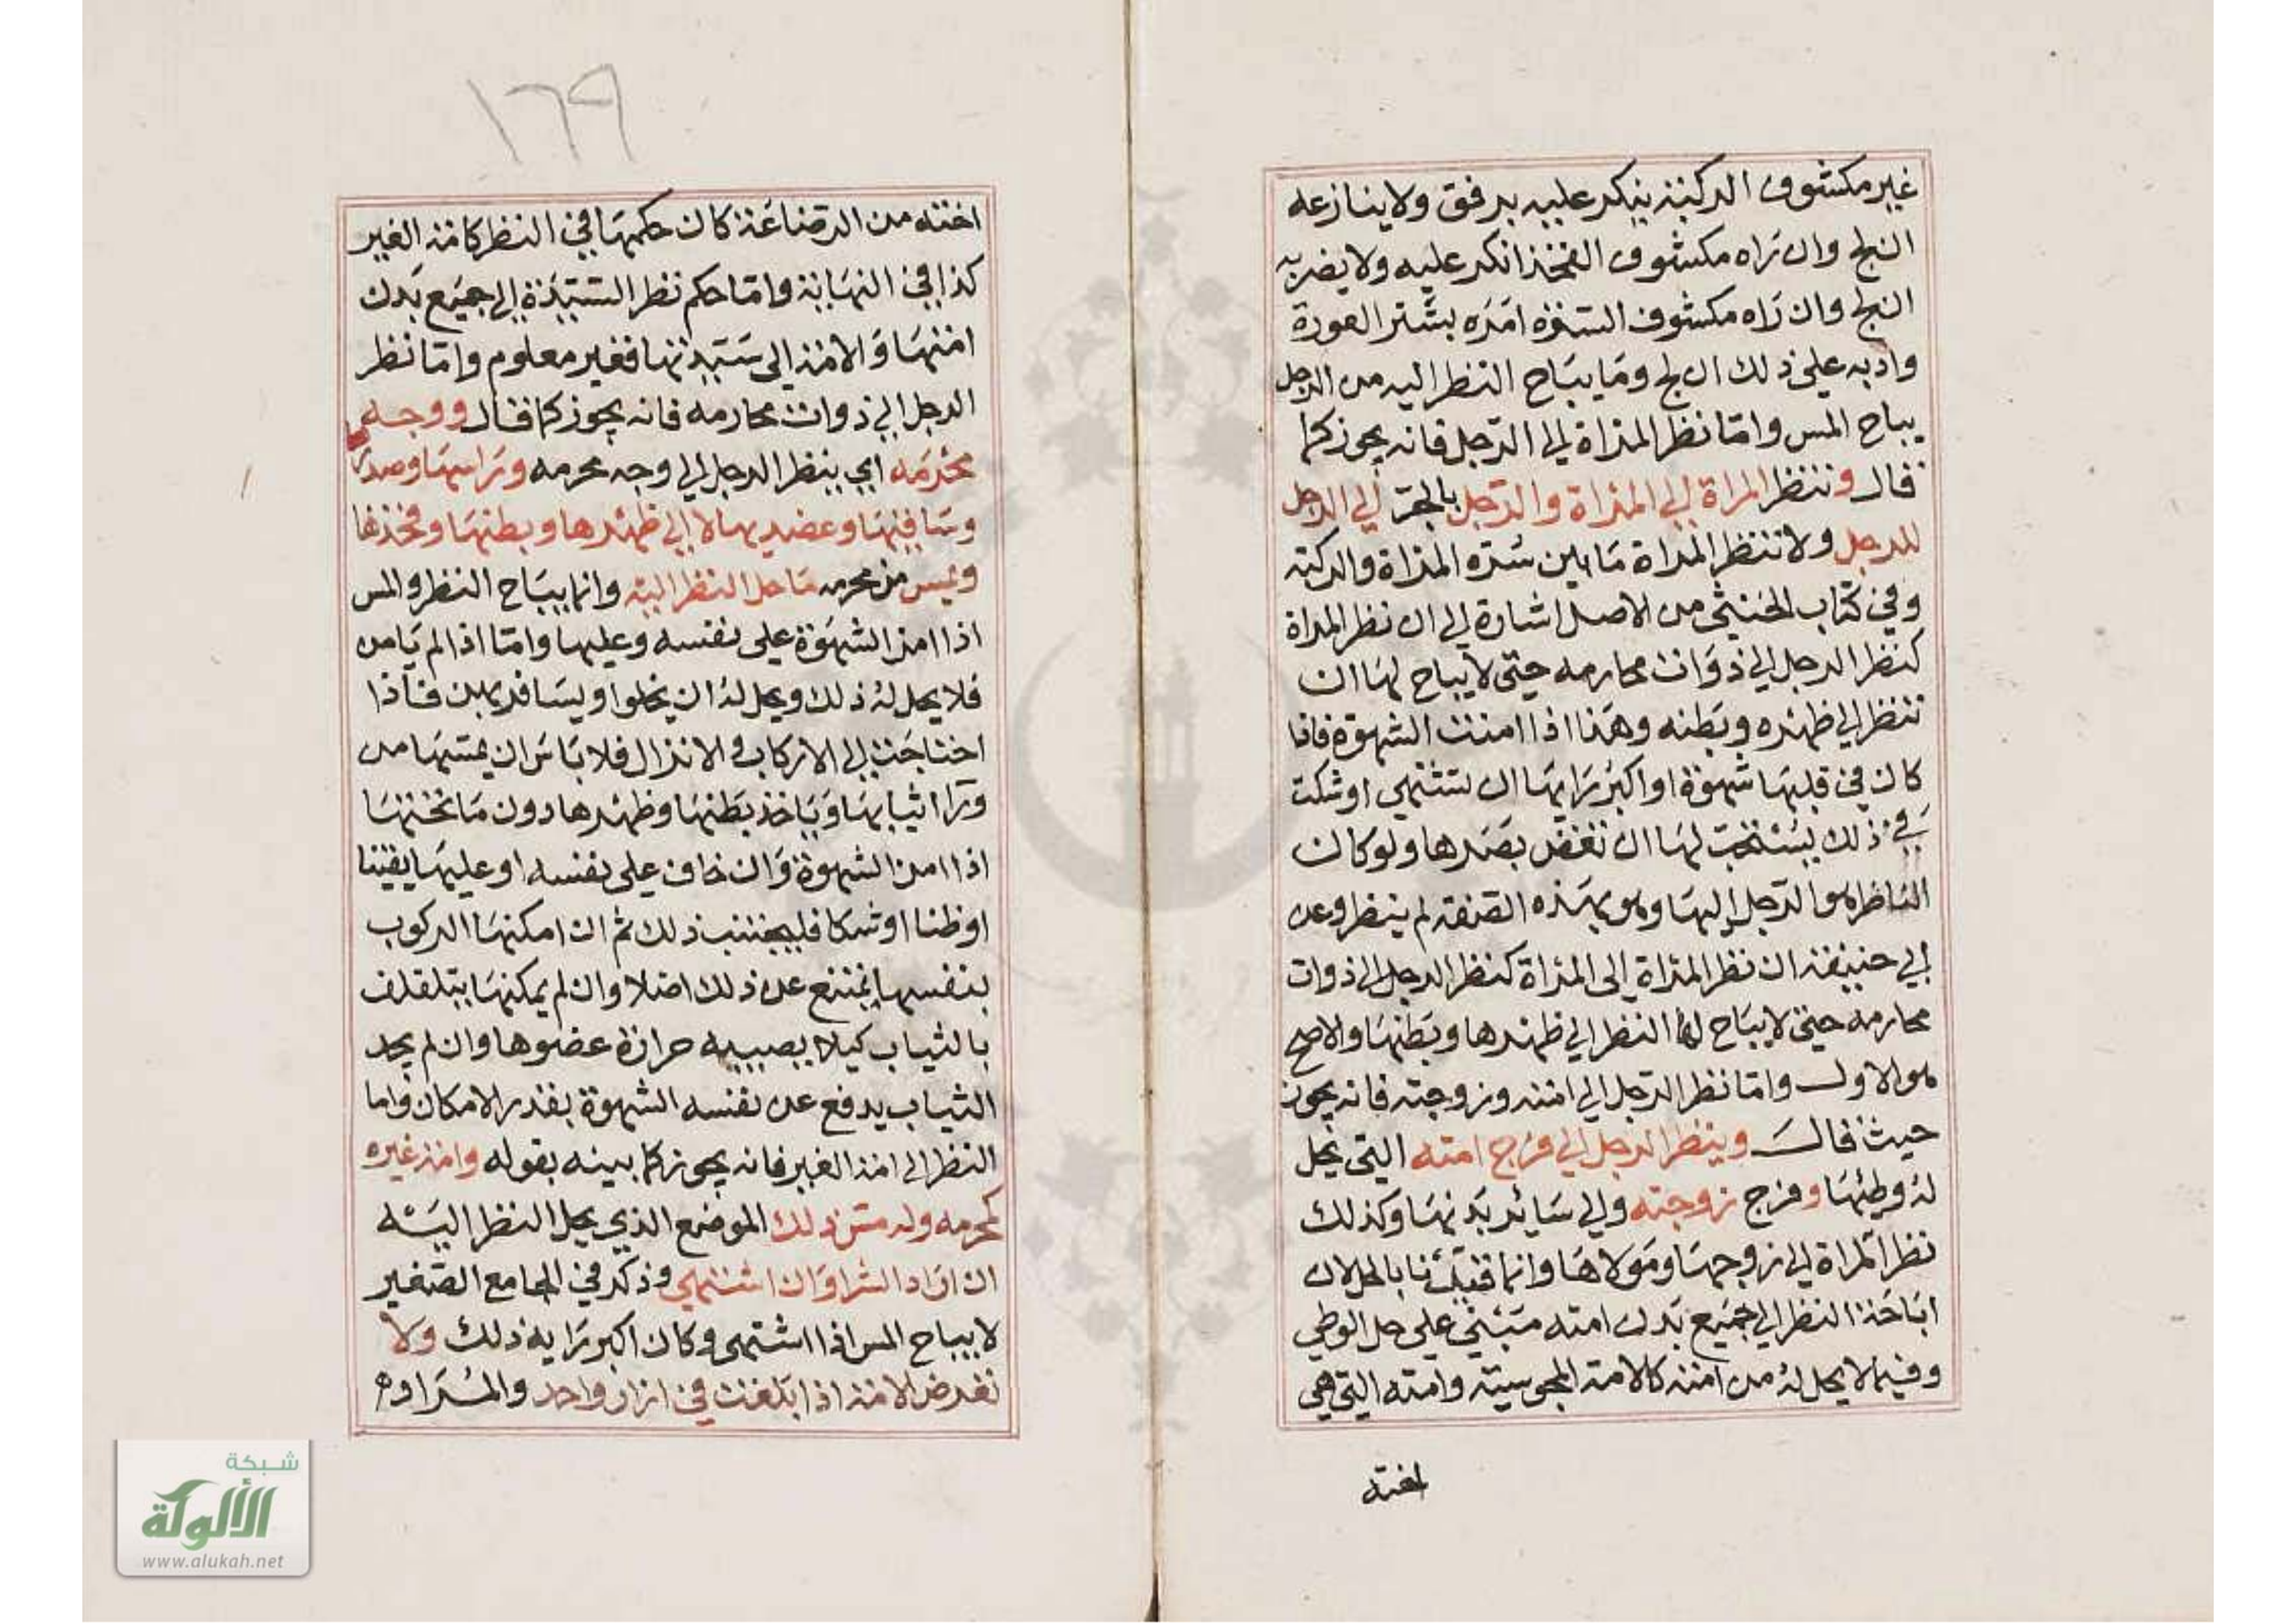 غير مكشوف الركبة ينكر عليه برفق ولا ينازعه
ان لج وان راه مكشوف الفخذ انكر عليه ولا يضربه
ان لج وان راه مكشوف السوءة امره بستر العورة
وادبه على ذلك ان لج وما يباح النظر اليه من الرجل
يباح المس واما نظر المراة الى الرجل فانه يجوز كما
قال وتنظر المراة الى المراة والرجل بالجر الى الرجل
للرجل ولا تنظر المراة ما بين سرة المراة والركبة
وفي كتاب الخنثى من الاصل اشارة الى ان نظر المراة
كنظر الرجل الى ذوات محارمه حتى لا يباح لها ان
تنظر الى ظهره وبطنه وهذا اذا امنت الشهوة فاذا
كان في قلبها شهوة او اكبر رايها ان تشتهي او شكت
في ذلك يستحب لها ان تغض بصرها ولو كان
الناظر هو الرجل اليها وهو بهذه الصفة لم ينظر وعن
ابي حنيفة ان نظر المراة الى المراة كنظر الرجل الى ذوات
محارمه حتى لا يباح لها النظر الى ظهرها وبطنها والاصح
هو الاول واما نظر الرجل الى امته وزوجته فانه يجوز
حيث قال وينظر الرجل الى فرج امته التي يحل
له وطئها وفرج زوجته والى سائر بدنها وكذلك
نظر المراة الى زوجها ومولاها وانما قيدنا بالحل لان
اباحة النظر الى جميع بدن امته مبني على حل الوطي
وفيما لا يحل له من امته كالامة المجوسية وامته التي هي
اخته
١٦٩
اخته من الرضاعة كان حكمها في النظر كامة الغير
كذا في النهاية واما حكم نظر السيدة الى جميع بدن
امتها والامة الى سيدتها فغير معلوم واما نظر
الرجل الى ذوات محارمه فانه يجوز كما قال ووجه
محرمه اي ينظر الرجل الى وجه محرمه وراسها وصدرها
وساقيها وعضديها لا الى ظهرها وبطنها وفخذها
ويمس من محرمه ما حل النظر اليه وانما يباح النظر والمس
اذا امن الشهوة على نفسه وعليها واما اذا لم يامن
فلا يحل له ذلك ويحل له ان يخلوا ويسافر بهن فاذا
احتاجت الى الاركاب والانزال فلا باس ان يمسها من
ورا ثيابها وياخذ بطنها وظهرها دون ما تحتها
اذا امن الشهوة وان خاف على نفسه او عليها يقينا
او ظنا او شكا فليجتنب ذلك ثم ان امكنها الركوب
بنفسها يمتنع عن ذلك اصلا وان لم يمكنها يتلفلف
بالثياب كيلا يصيبه حرارة عضوها وان لم يجد
الثياب يدفع عن نفسه الشهوة بقدر الامكان واما
النظر الى امة الغير فانه يجوز كما بينه بقوله وامة غيره
كمحرمه وله مس ذلك الموضع الذي يحل النظر اليه
ان اراد الشرا وان اشتهي وذكر في الجامع الصغير
لا يباح المس اذا اشتهى وكان اكبر رايه ذلك ولا
تعرض الامة اذا بلغت في ازار واحد والمراد به
شبكة
الألوكة
www.alukah.net